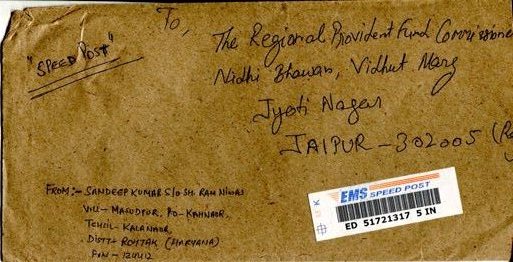 To,
"SPEED POST"
The Regional Provident Fund Commissione
Nidhi Bhawan, Vidhut Marg
Jyoti Nagar
JAIPUR - 302005 (Ra
EMS SPEED POST
ED 51721317 5 IN
FROM:- SANDEEP KUMAR S/o SH. RAM NIWAS
VILL- MASUDPUR, PO- KAHNAUR,
TEHSIL- KALANAUR,
DISTT- ROHTAK (HARYANA)
PIN - 124412